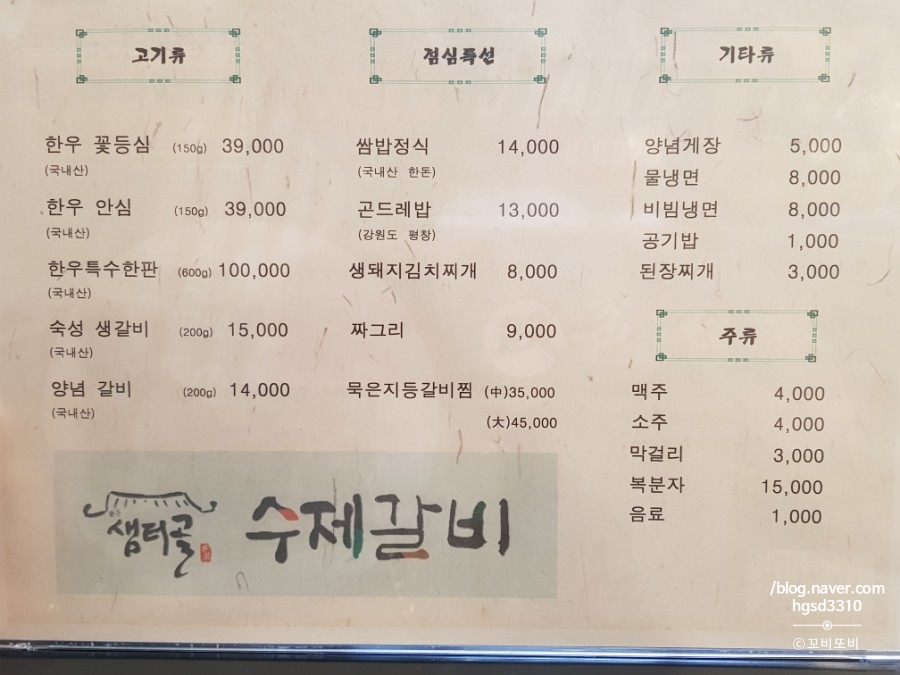 고기류
한우 꽃등심 (150g) 39,000
(국내산)
한우 안심 (150g) 39,000
(국내산)
한우특수한판 (600g) 100,000
(국내산)
숙성 생갈비 (200g) 15,000
(국내산)
양념 갈비 (200g) 14,000
(국내산)
점심특선
쌈밥정식 14,000
(국내산 한돈)
곤드레밥 13,000
(강원도 평창)
생돼지김치찌개 8,000
짜그리 9,000
묵은지등갈비찜 (中)35,000
(大)45,000
기타류
양념게장 5,000
물냉면 8,000
비빔냉면 8,000
공기밥 1,000
된장찌개 3,000
주류
맥주 4,000
소주 4,000
막걸리 3,000
복분자 15,000
음료 1,000
샘터골 수제갈비
/blog.naver.com
hgsd3310
ⓒ꼬비또비